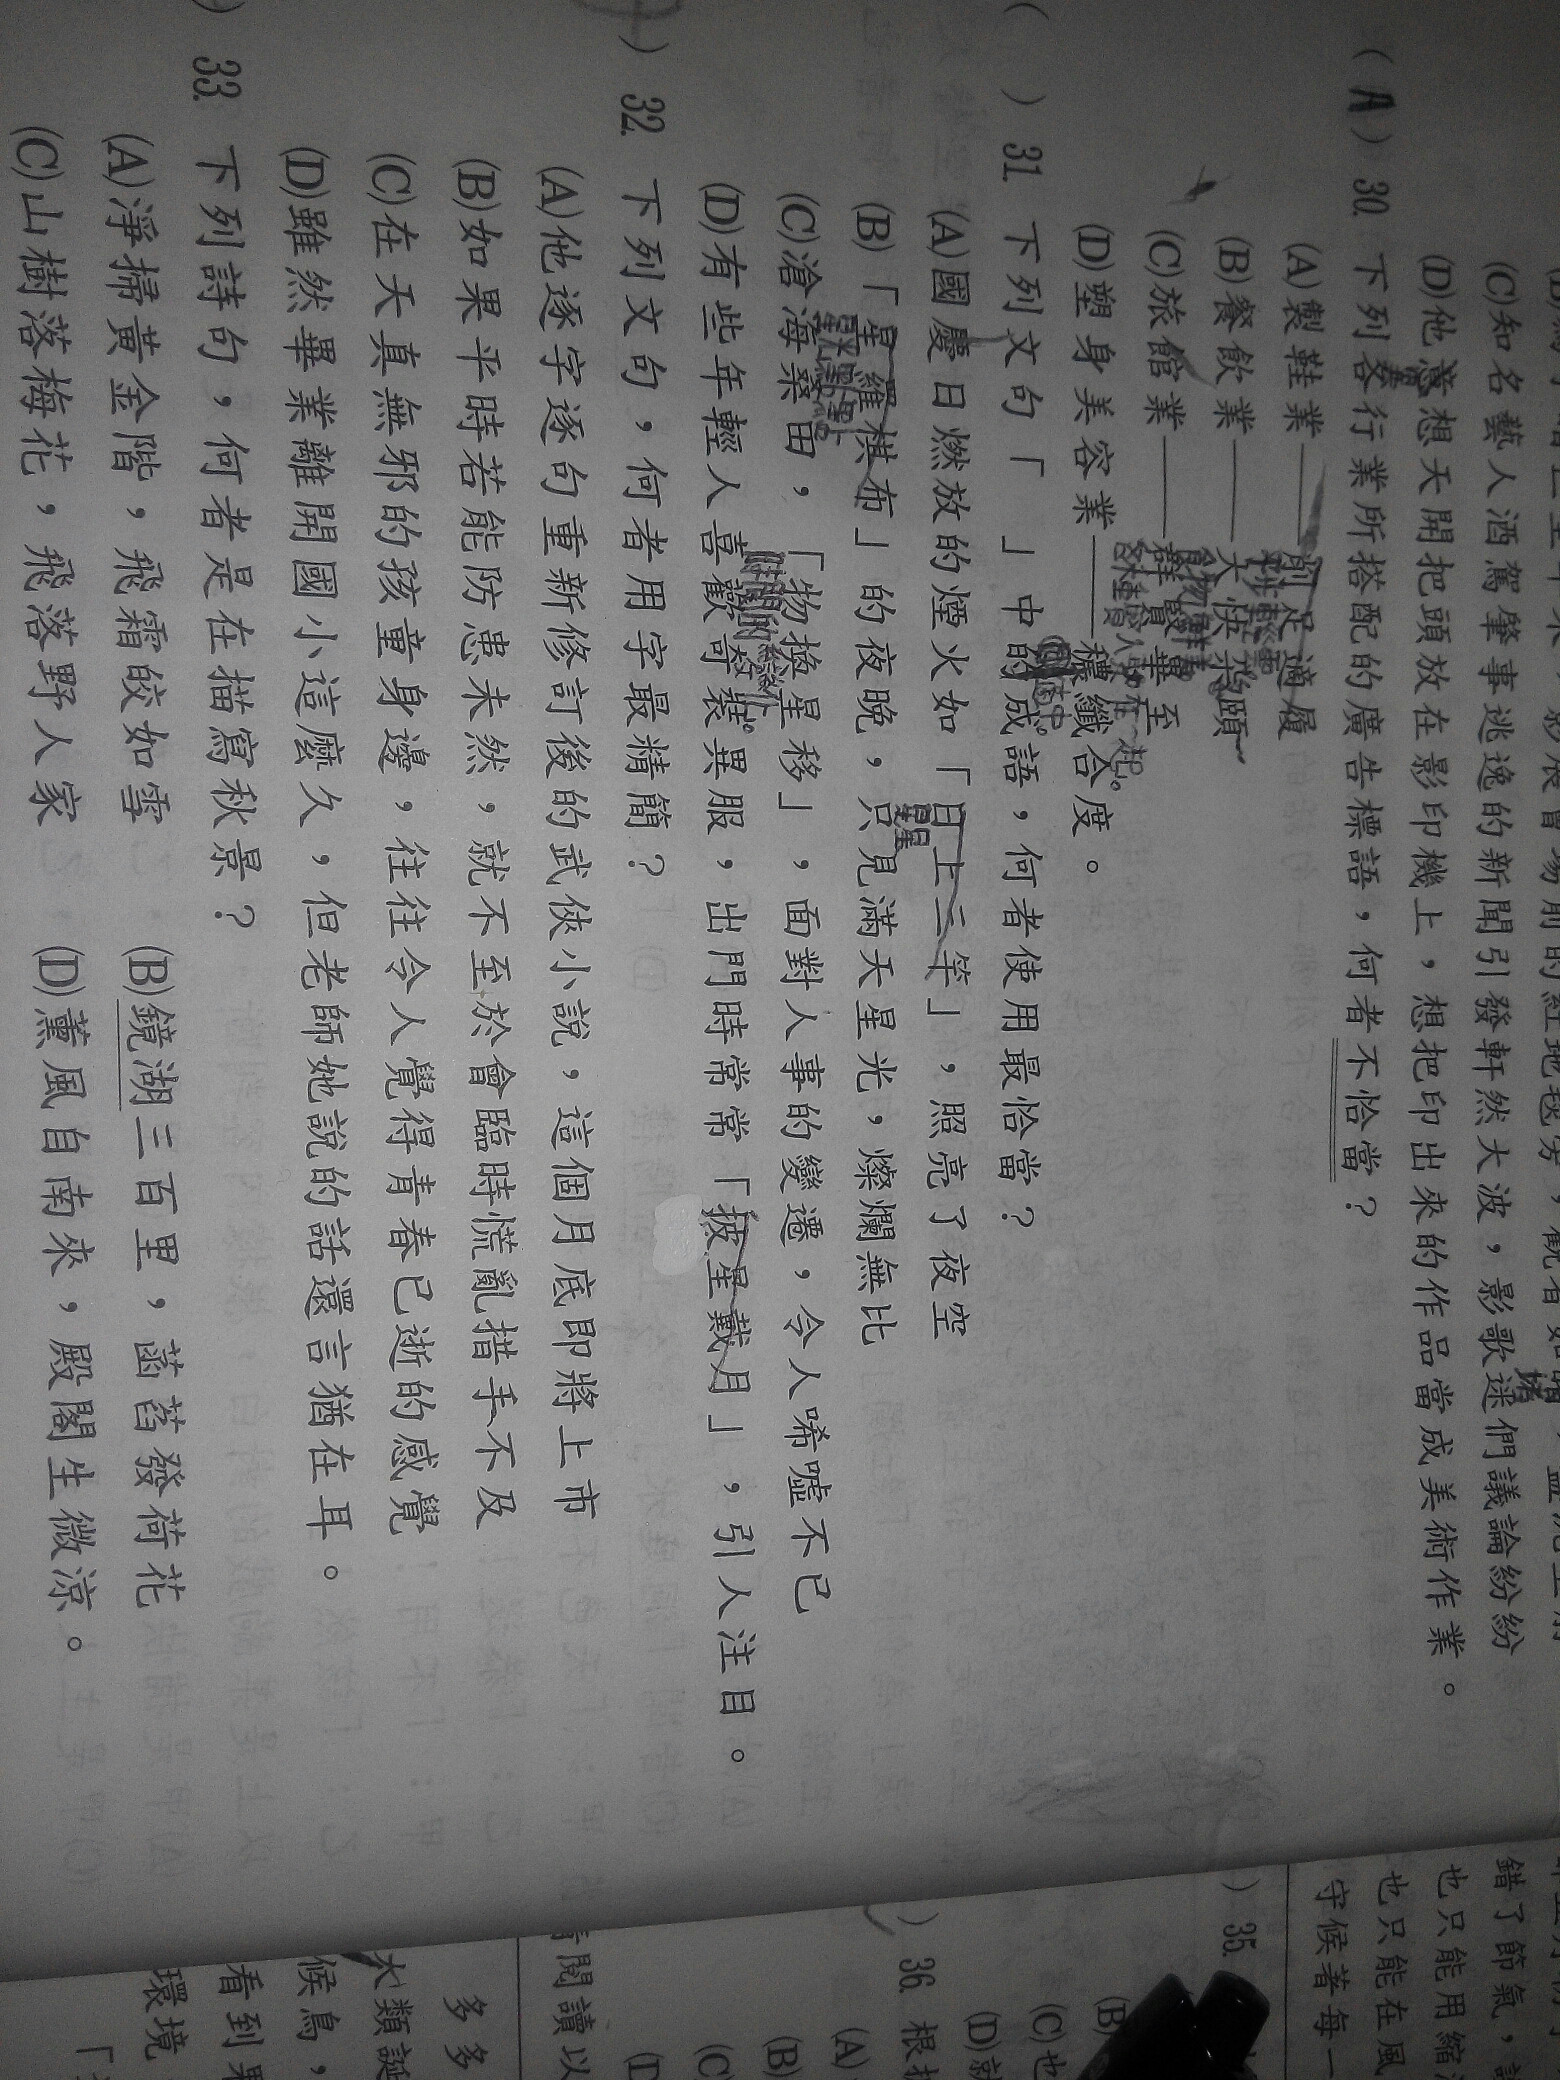 (C)知名藝人酒駕肇事逃逸的新聞引發軒然大波，影歌迷們議論紛紛
(D)他想天開把頭放在影印機上，想把印出來的作品當成美術作業。
(A) 30. 下列各行業所搭配的廣告標語，何者不恰當？
(A)製鞋業——削足適履
(B)餐飲業——大快朵頤
(C)旅館業——群賢畢至
(D)塑身美容業——穠纖合度。
( ) 31. 下列文句「　」中的成語，何者使用最恰當？
(A)國慶日燃放的煙火如「日上三竿」，照亮了夜空
(B)「星羅棋布」的夜晚，只見滿天星光，燦爛無比
(C)滄海桑田，「物換星移」，面對人事的變遷，令人唏噓不已
時間的
(D)有些年輕人喜歡奇裝異服，出門時常常「披星戴月」，引人注目。
) 32. 下列文句，何者用字最精簡？
(A)他逐字逐句重新修訂後的武俠小說，這個月底即將上市
(B)如果平時若能防患未然，就不至於會臨時慌亂措手不及
(C)在天真無邪的孩童身邊，往往令人覺得青春已逝的感覺
(D)雖然畢業離開國小這麼久，但老師她說的話還言猶在耳。
) 33. 下列詩句，何者是在描寫秋景？
(A)淨掃黃金階，飛霜皎如雪　(B)鏡湖三百里，菡萏發荷花
(C)山樹落梅花，飛落野人家　(D)薰風自南來，殿閣生微涼。
錯了節氣，
也只能用縮
也只能在風
守候著每一
) 35.
(B)
(C)也
(D)就
) 36. 根
(A)
(B)
(C)
(D
閱讀以
多多
水類誕
候鳥，
看到
環境
「